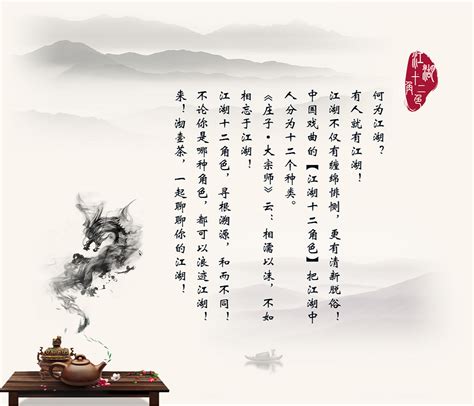 江湖
十二
角色
何为江湖？
有人就有江湖！
江湖不仅有缠绵悱恻，更有清新脱俗！
中国戏曲的【江湖十二角色】把江湖中
人分为十二个种类。
《庄子·大宗师》云：相濡以沫，不如
相忘于江湖！
江湖十二角色，寻根溯源，和而不同！
不论你是哪种角色，都可以浪迹江湖！
来！沏壶茶，一起聊聊你的江湖！